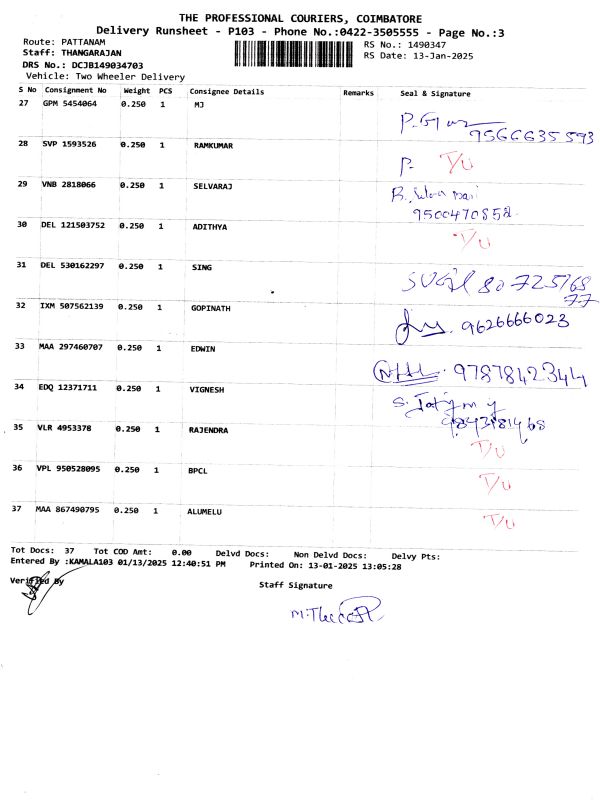 THE PROFESSIONAL COURIERS, COIMBATORE
Delivery Runsheet - P103 - Phone No.:0422-3505555 - Page No.:3
Route: PATTANAM
RS No.: 1490347
Staff: THANGARAJAN
RS Date: 13-Jan-2025
DRS No.: DCJB149034703
Vehicle: Two Wheeler Delivery
S No Consignment No Weight PCS Consignee Details Remarks Seal & Signature
27 GPM 5454064 0.250 1 MJ
9566635593
28 SVP 1593526 0.250 1 RAMKUMAR
P. T/U
29 VNB 2818066 0.250 1 SELVARAJ
9500470858
30 DEL 121503752 0.250 1 ADITHYA
T/U
31 DEL 530162297 0.250 1 SING
80 725768
77
32 IXM 507562139 0.250 1 GOPINATH
9626666023
33 MAA 297460707 0.250 1 EDWIN
9787842344
34 EDQ 12371711 0.250 1 VIGNESH
S.
35 VLR 4953378 0.250 1 RAJENDRA
T/U
36 VPL 950528095 0.250 1 BPCL
T/U
37 MAA 867490795 0.250 1 ALUMELU
T/U
Tot Docs: 37 Tot COD Amt: 0.00 Delvd Docs: Non Delvd Docs: Delvy Pts:
Entered By :KAMALA103 01/13/2025 12:40:51 PM Printed On: 13-01-2025 13:05:28
Verified By
Staff Signature